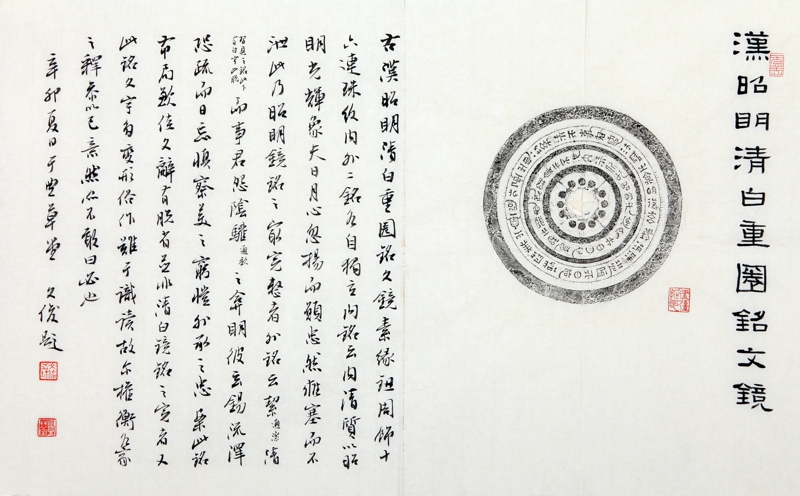 漢昭明清白重圈銘文鏡
古漢昭明清白重圈銘文鏡素緣周飾十
六連珠紋內外二銘各自獨立內銘云內清質以昭
明光輝象夫日月心忽揚而願忠然雍塞而不
泄此乃昭明鏡銘之最完整者外銘云絜清
而事君怨陰驩之弇明彼玄錫流澤
恐疏而日忘慎察美之窮愷外承之忠此銘
布局佳文辭有脫者並非清白鏡銘之完者又
此銘文字為變形俗作難于識讀故尔權衡各家
之釋參以己意然亦不敢曰必也
辛卯夏日于豐草堂 文俊題